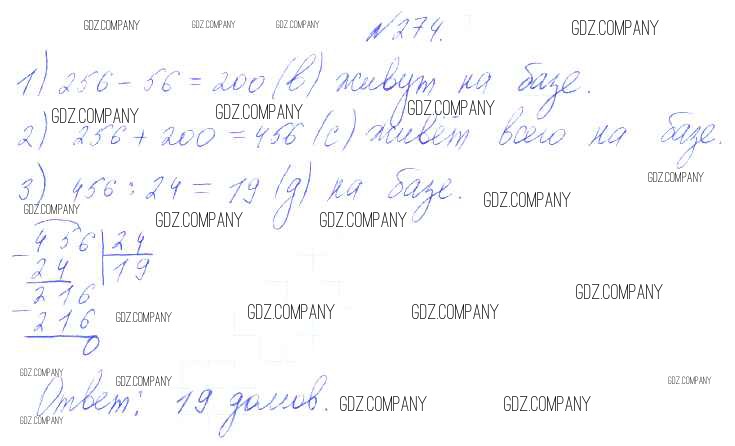 GDZ.COMPANY GDZ.COMPANY GDZ.COMPANY №274. GDZ.COMPANY
1) 256 - 56 = 200 (в) живут на базе.
GDZ.COMPANY GDZ.COMPANY GDZ.COMPANY
2) 256 + 200 = 456 (с) живёт всего на базе.
GDZ.COMPANY
3) 456 : 24 = 19 (д) на базе. GDZ.COMPANY
GDZ.COMPANY GDZ.COMPANY GDZ.COMPANY
- 456 | 24
24 | 19
216
GDZ.COMPANY
- 216 GDZ.COMPANY GDZ.COMPANY GDZ.COMPANY
0
GDZ.COMPANY GDZ.COMPANY GDZ.COMPANY
Ответ: 19 домов. GDZ.COMPANY GDZ.COMPANY
GDZ.COMPANY